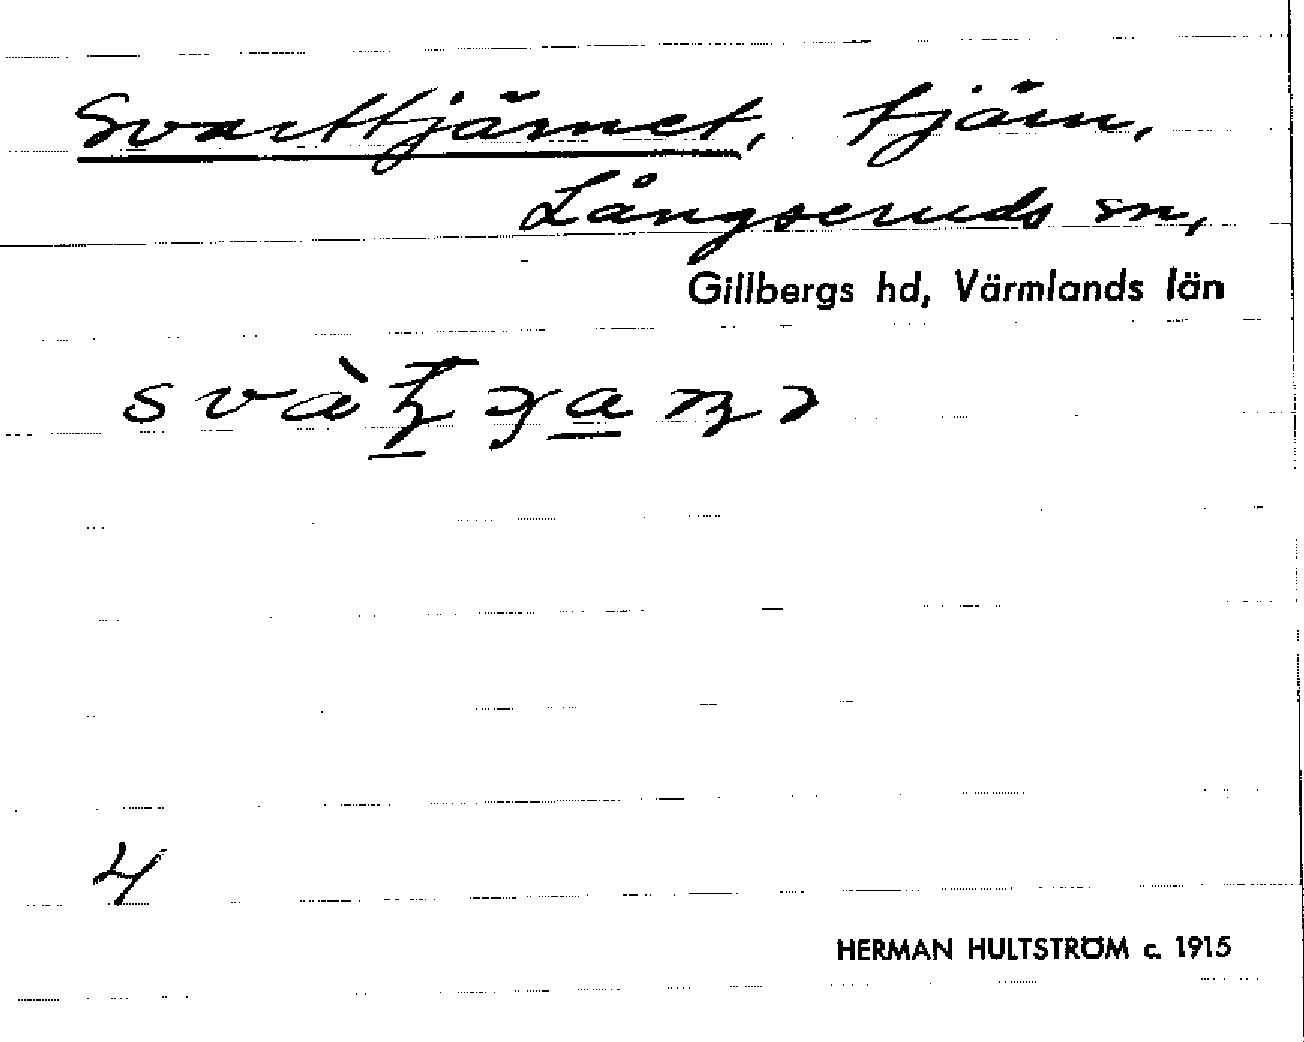 Svarttjärnet, tjärn,
Långseruds sn,
Gillbergs hd, Värmlands län
4
HERMAN HULTSTRÖM c. 1915